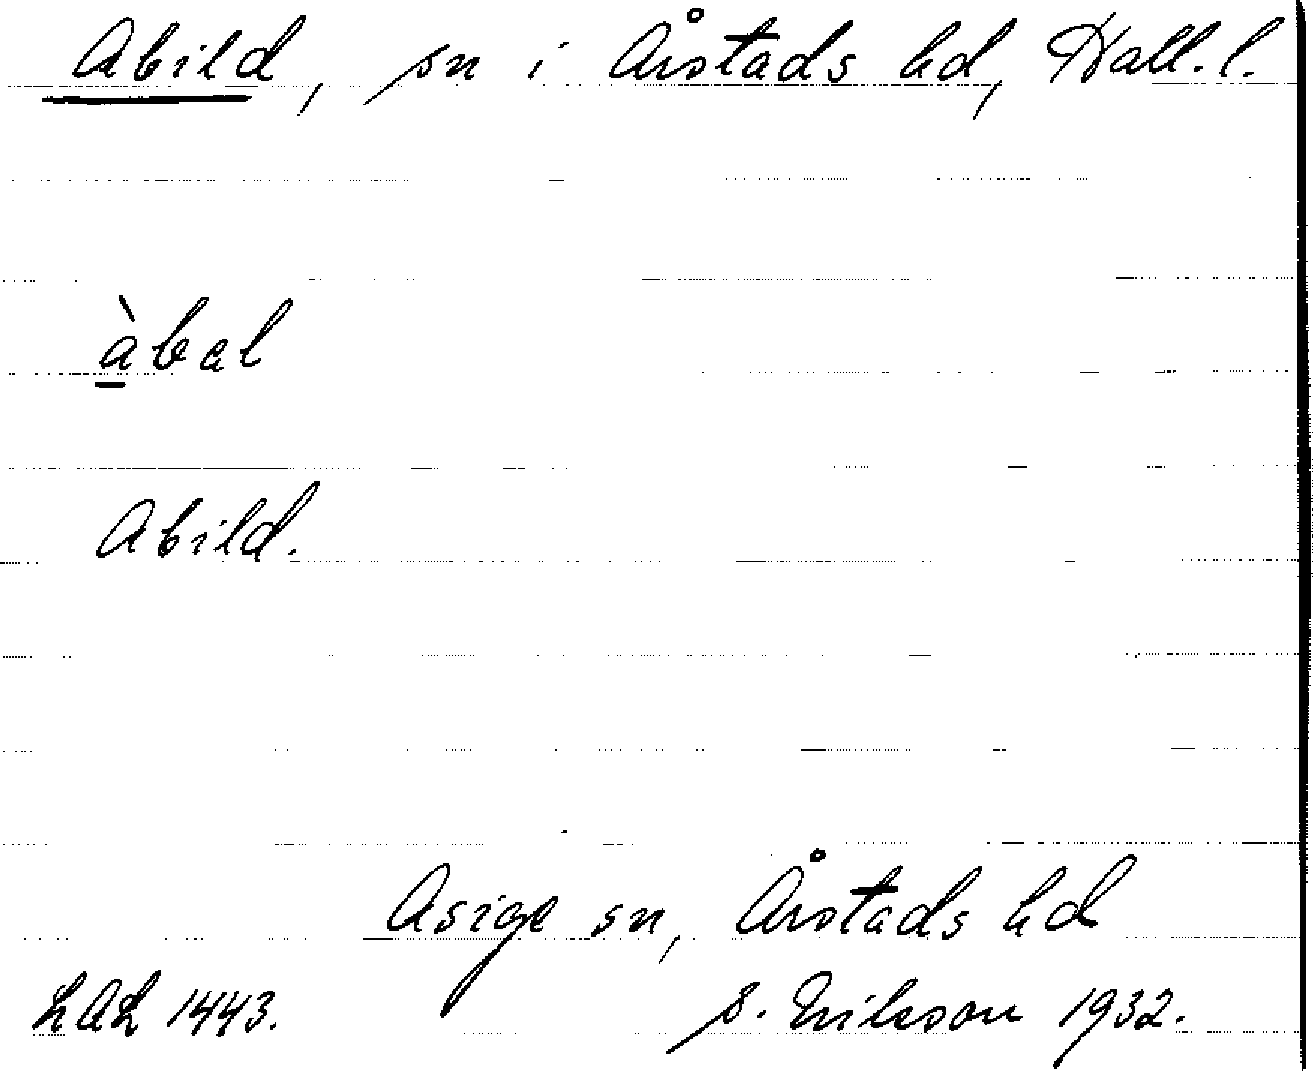 Abild, sn i Årstads hd, Hall. l.
àbal
Abild.
Asige sn, Årstads hd
LAL 1443. S. Eriksson 1932.